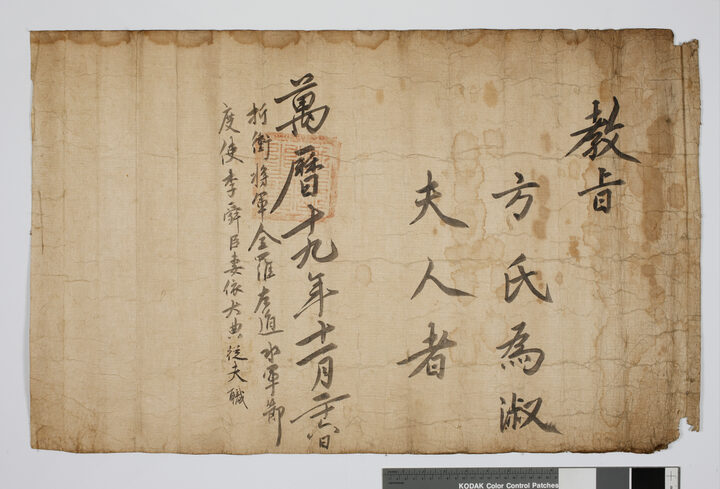 教旨
方氏為淑
夫人者
萬曆十九年十一月日
折衝將軍全羅左道水軍節
度使李舜臣妻依大典從夫職
KODAK Color Control Patches